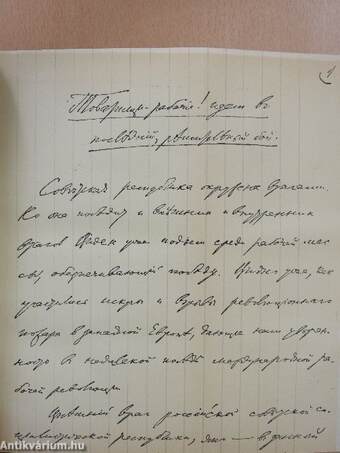 1
Товарищи-рабочие! идем в
последний, решительный бой.
Советская республика окружена врагами.
Но она победит и внешних и внутренних
врагов. Виден уже подъем среди рабочей мас-
сы, обеспечивающий победу. Видно уже, как
участились искры и взрывы революционного
пожара в западной Европе, дающие нам уверен-
ность в недалекой победе международной ра-
бочей революции.
Внешний враг российской советской со-
циалистической республики, это —
Antikvárium.hu